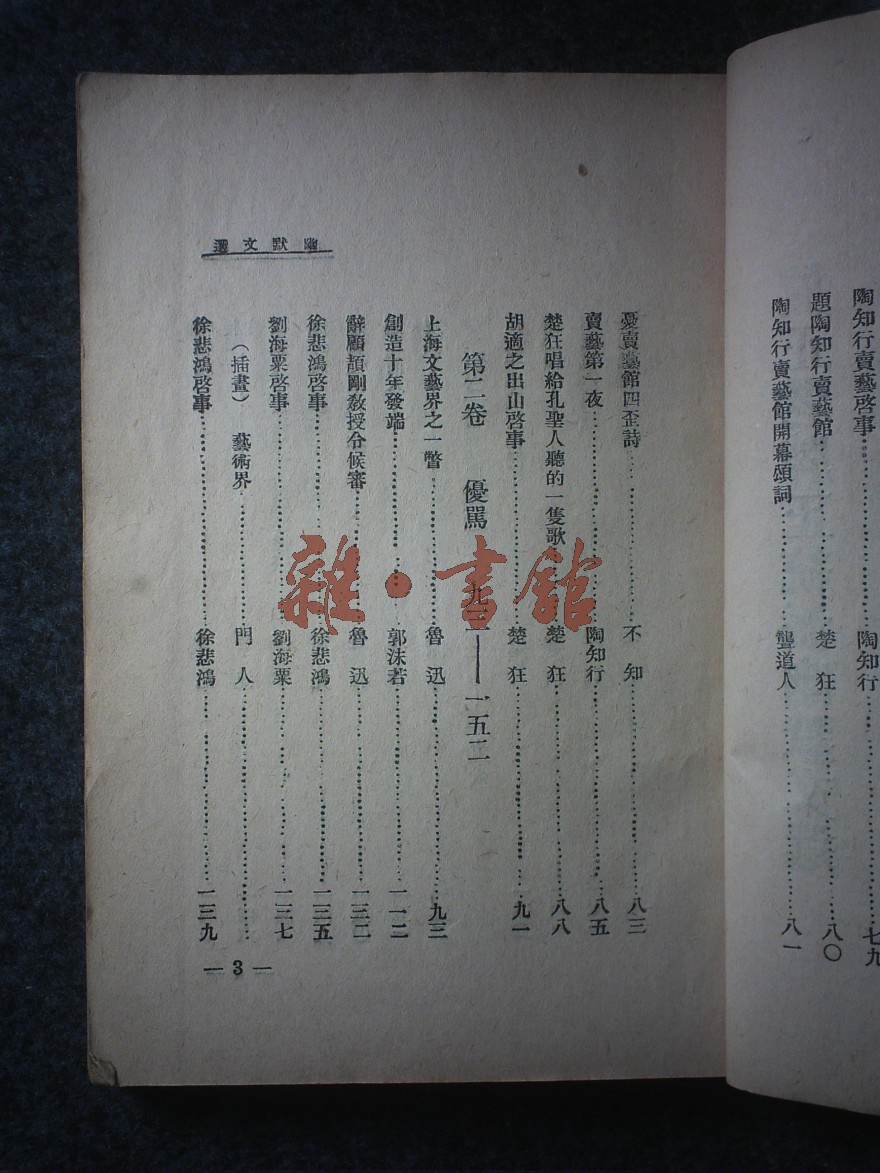 陶知行賣藝啓事……陶知行……七九
題陶知行賣藝館……楚狂……八〇
陶知行賣藝館開幕頌詞……聾道人……八一
幽默文選
憂賣藝館四歪詩……不知……八三
賣藝第一夜……陶知行……八五
楚狂唱給孔聖人聽的一隻歌……楚狂……八八
胡適之出山啓事……楚狂……九一
第二卷 優罵 九三——一五二
上海文藝界之一瞥……魯迅……九三
創造十年發端……郭沫若……一一二
辭顧頡剛教授令候審……魯迅……一三二
徐悲鴻啓事……徐悲鴻……一三五
劉海粟啓事……劉海粟……一三七
(插畫) 藝術界……門人……
徐悲鴻啓事……徐悲鴻……一三九
— 3 —
雜·書館